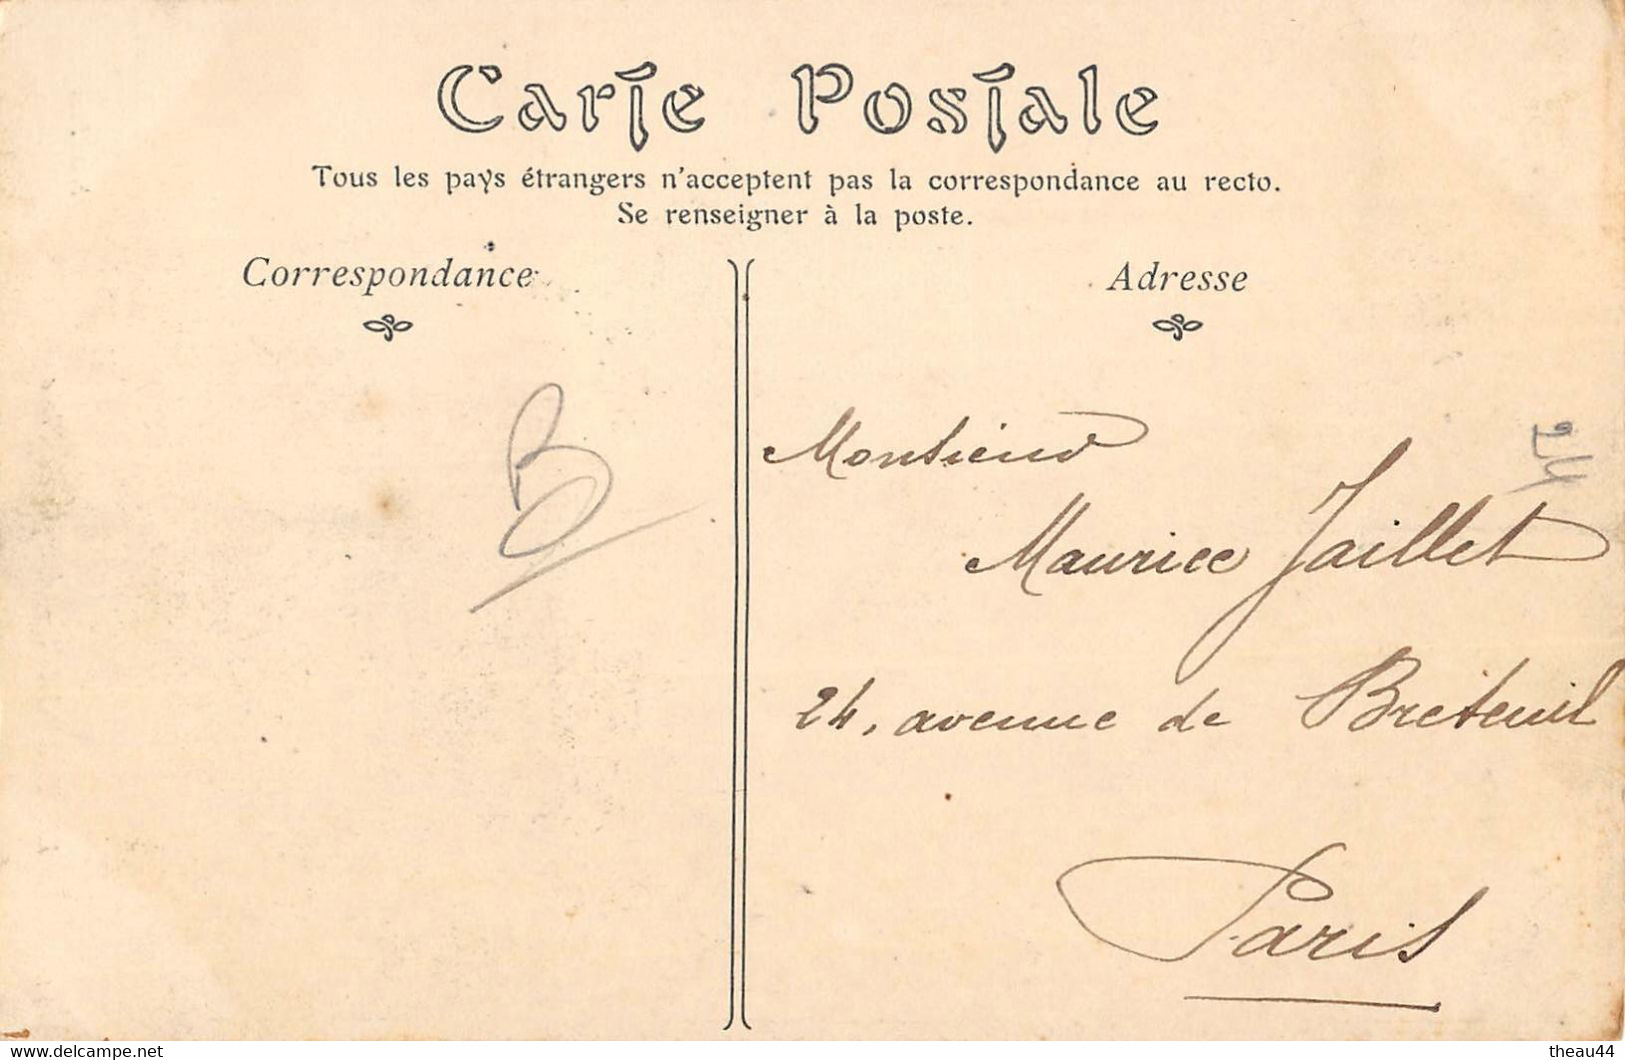 Carte Postale
Tous les pays étrangers n'acceptent pas la correspondance au recto.
Se renseigner à la poste.
Correspondance
Adresse
B
24
Monsieur
Maurice Jaillet
24, avenue de Breteuil
Paris
www.delcampe.net
theau44